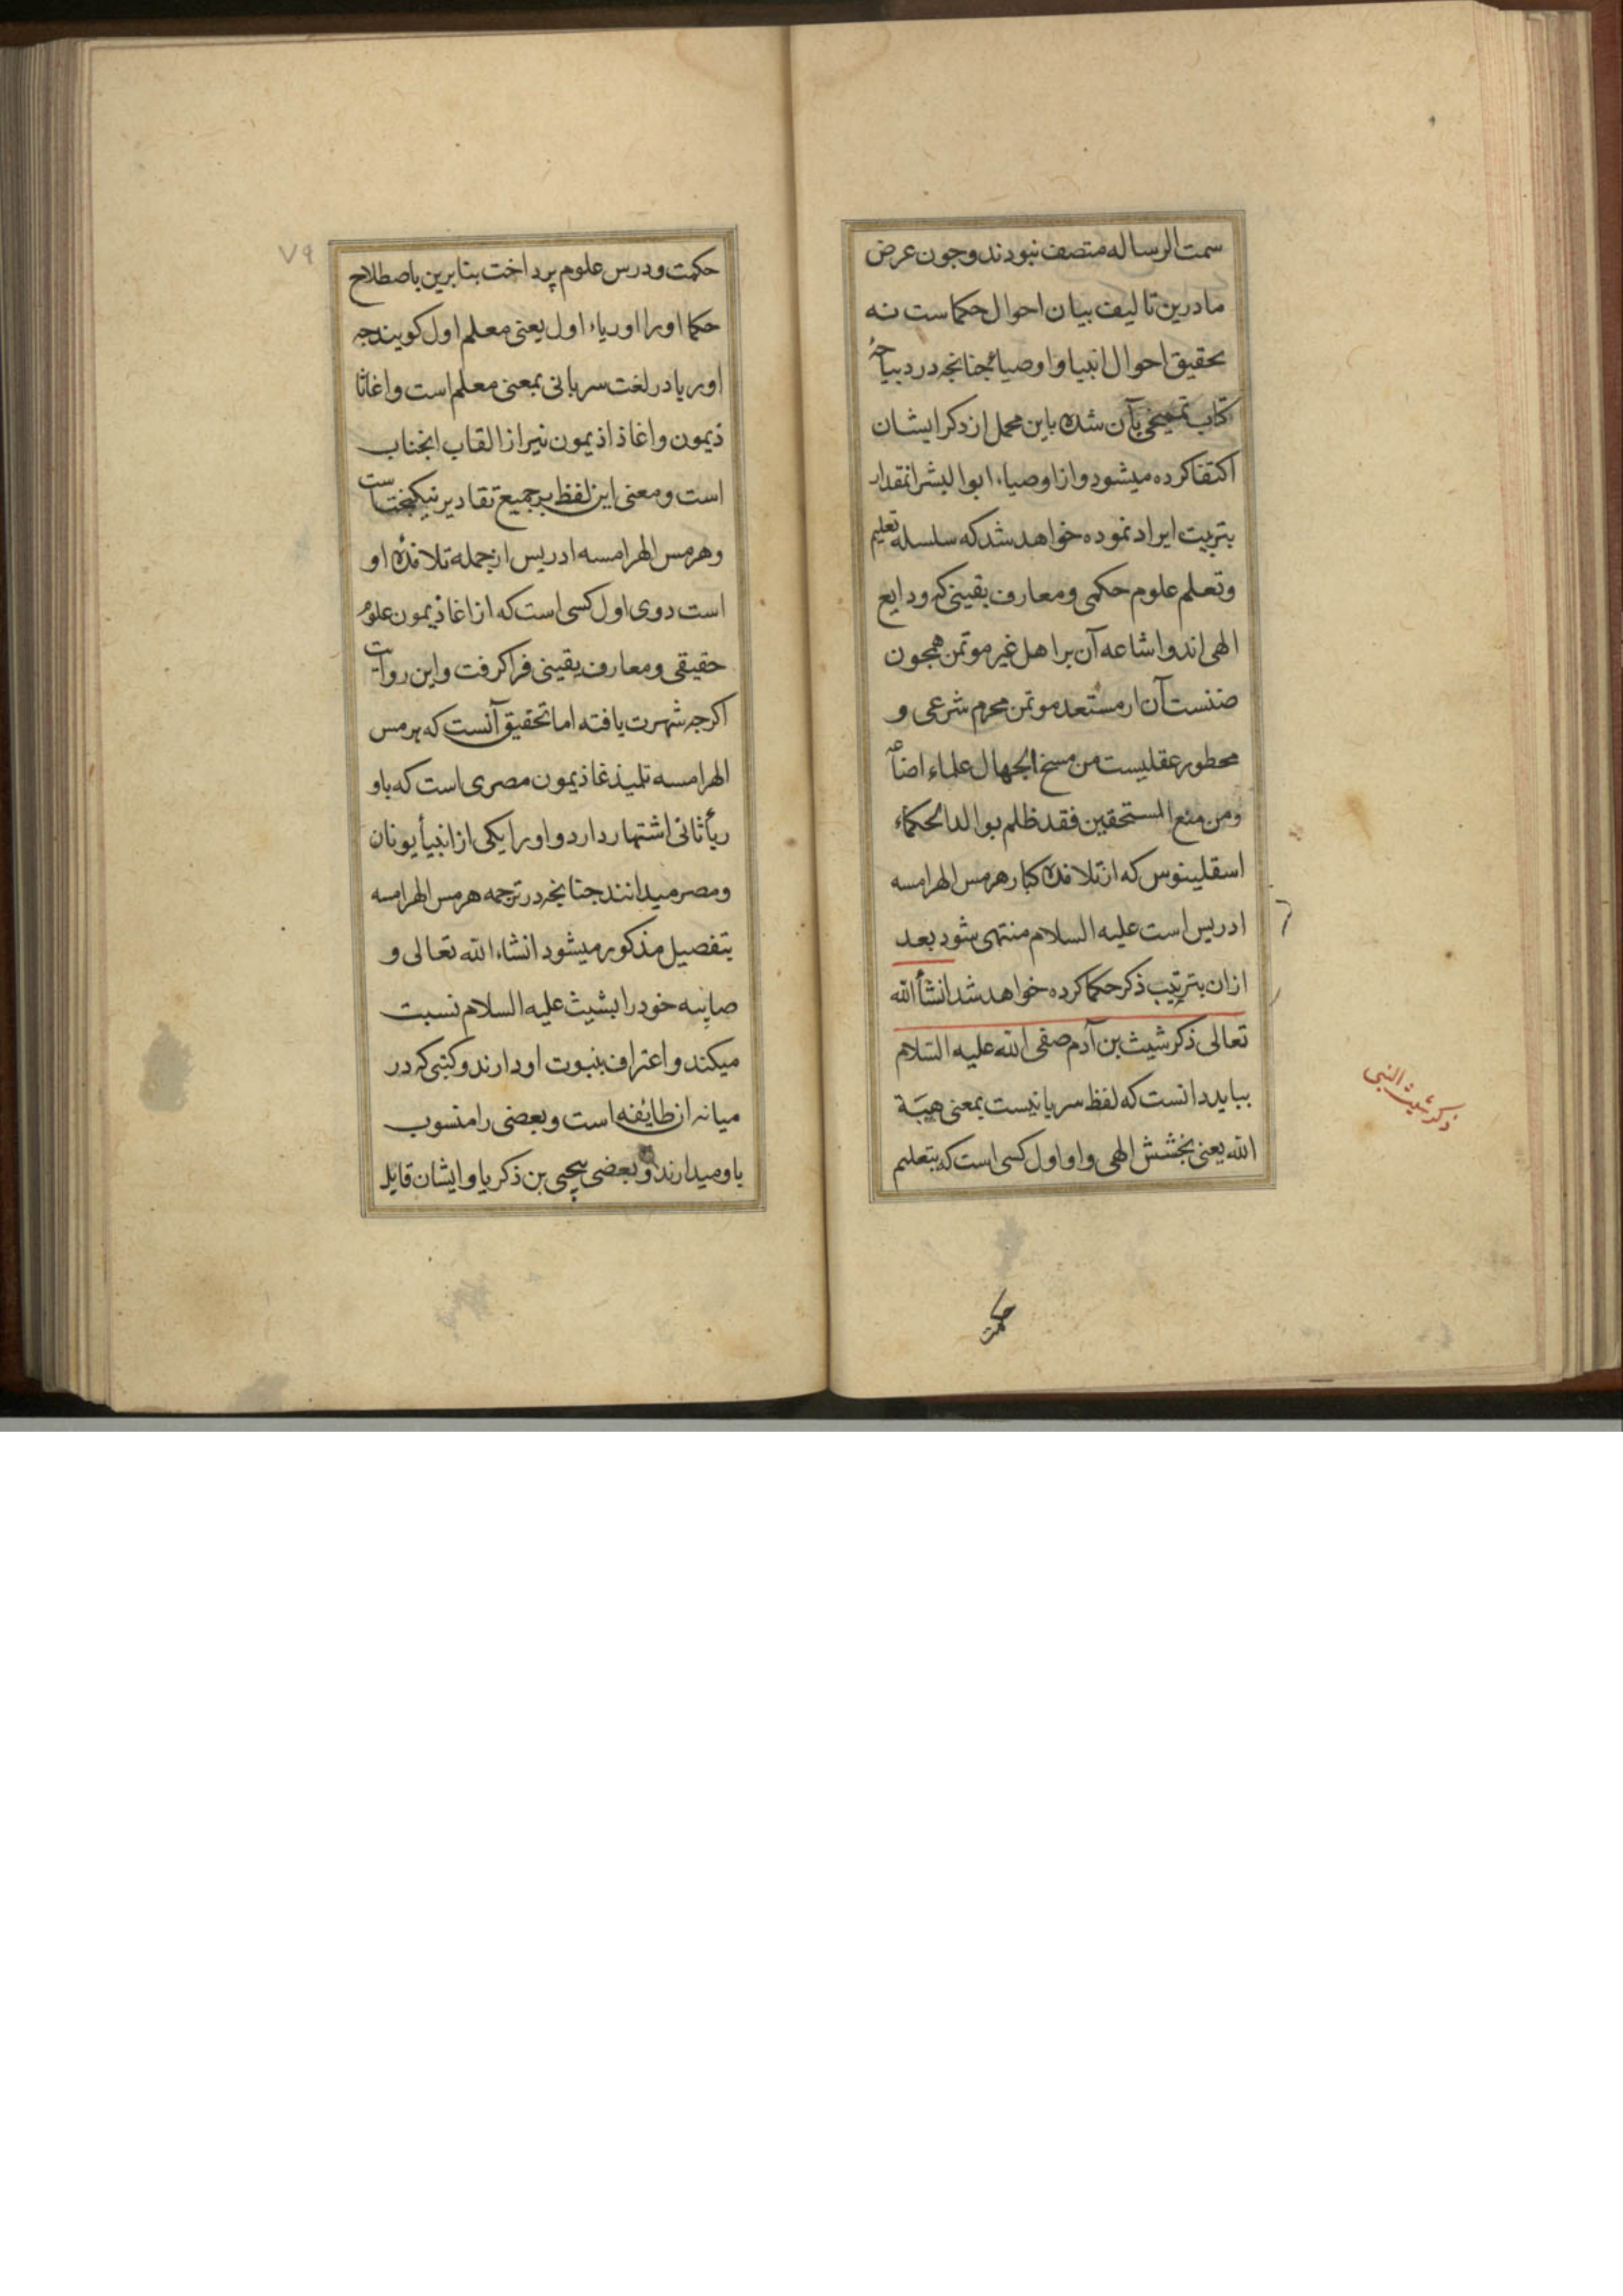 سمت الرساله متصف نبودند و جون عرض
ما درین تالیف بیان احوال حکماست نه
تحقیق احوال انبیا و اوصیا جنانجه در دیباجهٔ
کتاب بآن شده باین مجمل از ذکر ایشان
اکتفا کرده میشود و از اوصیاء ابوالبشر انمقدار
بتربیت ایراد نموده خواهد شد که سلسله تعلیم
و تعلم علوم حکمی و معارف یقینی که ودایع
الهی اند و اشاعه آن بر اهل غیر موتمن همجون
ضنست آن از مستعد موتمن محرم شرعی و
محطور عقلیست من مسخ الجهال علماء اضاعه
ومن منع المستحقین فقد ظلم بوالد الحکماء
اسقلینوس که از تلامذه کبار هرمس الهرامسه
ادریس است علیه السلام منتهی شود بعد
ازان بترتیب ذکر حکما کرده خواهد شد انشأ الله
تعالی ذکر شیث بن آدم صفی الله علیه السّلام
بباید دانست که لفظ سریانیست بمعنی هبَة
الله یعنی بخشش الهی و او اول کسی است که بتعلیم
ذکر شیث النبی
حکمت
۷۹
حکمت و درس علوم پرداخت بنابرین باصطلاح
حکما او را اوریاء اول یعنی معلم اول کویند جه
اوریا در لغت سریانی بمعنی معلم است و اغاثا
ذیمون و اغاذاذیمون نیز از القاب انجناب
است و معنی این لفظ بر جمیع تقادیر نیکبختست
و هرمس الهرامسه ادریس از جمله تلامذه او
است دوی اول کسی است که از اغاذیمون علوم
حقیقی و معارف یقینی فرا کرفت و این روایت
اکرجه شهرت یافته اما تحقیق آنست که هرمس
الهرامسه تلمیذ غاذیمون مصری است که باو
ریأ ثانی اشتهار دارد و او را یکی از انبیأ یونان
و مصر میدانند جنانجه در ترجمه هرمس الهرامسه
بتفصیل مذکور میشود انشاء الله تعالی و
صابیه خود را بشیث علیه السلام نسبت
میکند و اعتراف بنبوت او دارند و کتبی که در
میانه ان طایفه است و بعضی را منسوب
باو میدارند و بعضی بیحیی بن ذکریا و ایشان قایل